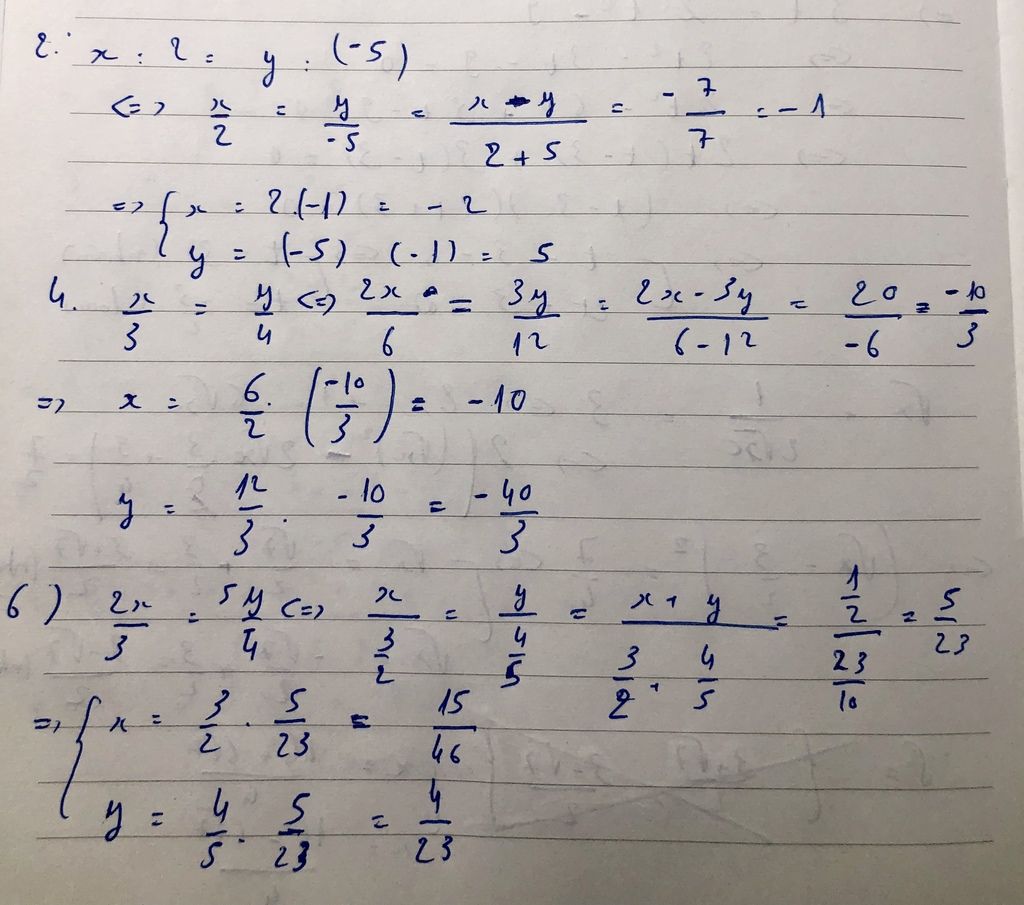 2. x : 2 = y : (-5)
<=> x/2 = y/-5 = x - y/2 + 5 = -7/7 = -1
=> { x = 2.(-1) = -2
y = (-5) (-1) = 5
4. x/3 = y/4 <=> 2x/6 = 3y/12 = 2x - 3y/6 - 12 = 20/-6 = -10/3
=> x = 6/2 . (-10/3) = -10
y = 12/3 . -10/3 = -40/3
6) 2x/3 = 5y/4 <=> x/(3/2) = y/(4/5) = x + y/(3/2 + 4/5) = (1/2)/(23/10) = 5/23
=> { x = 3/2 . 5/23 = 15/46
y = 4/5 . 5/23 = 4/23